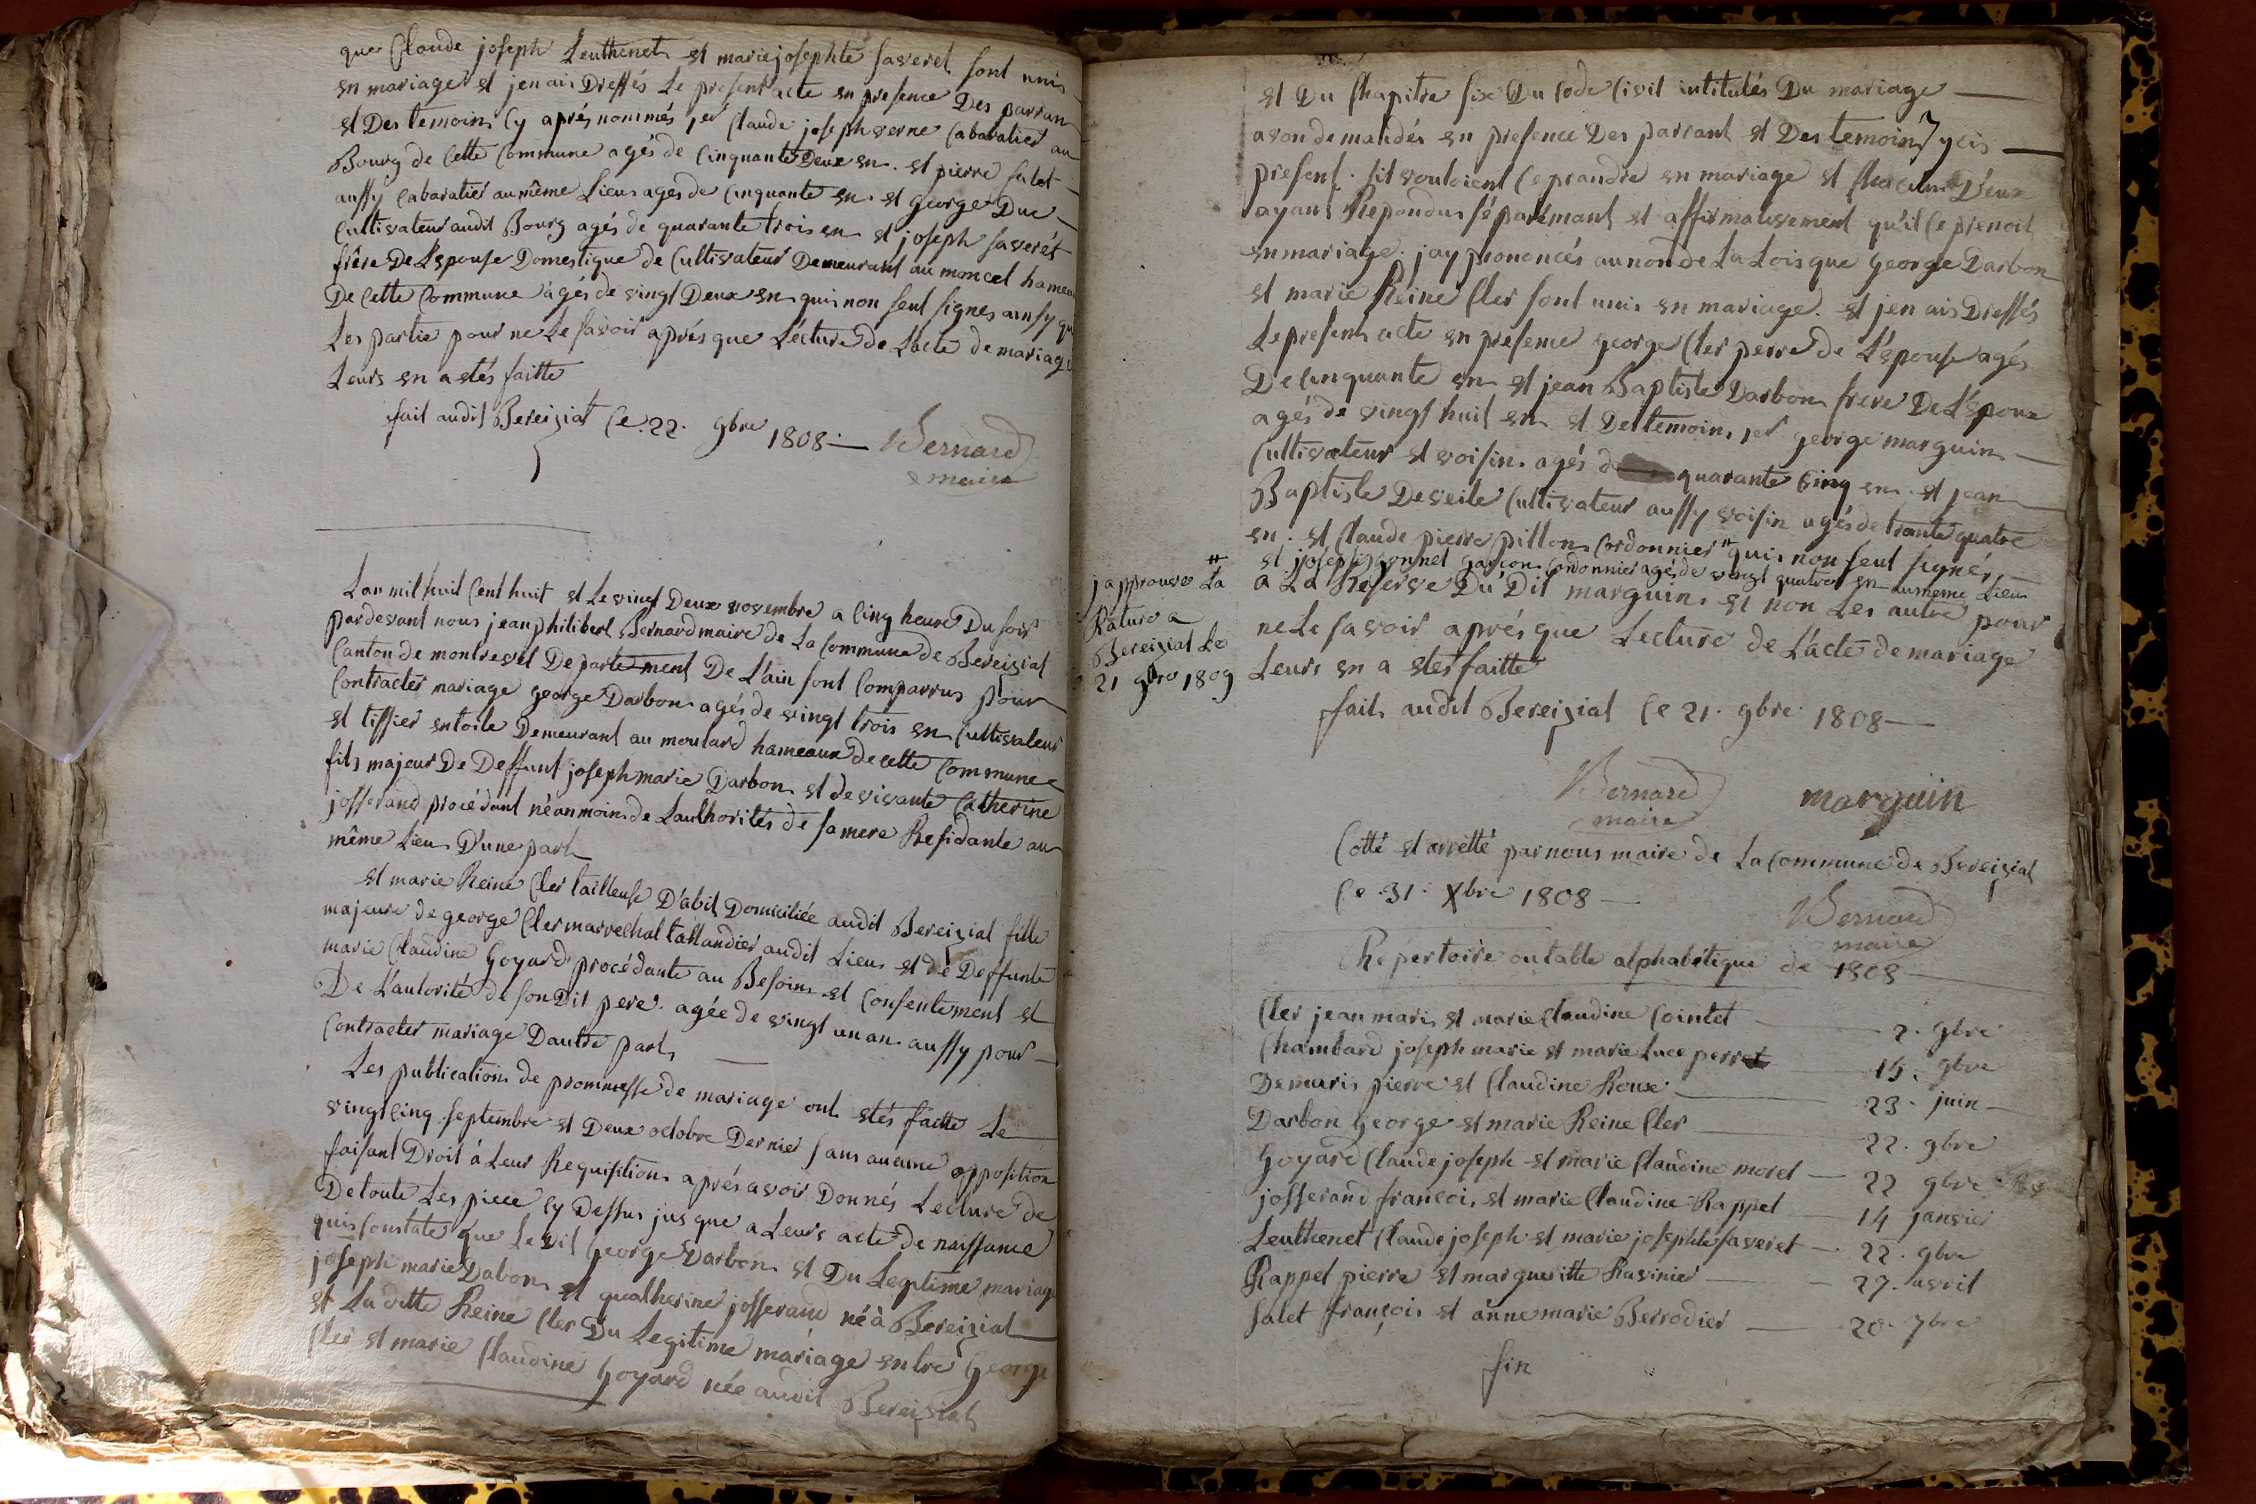 que Claude joseph Leuthenet et marie josephte saveret sont unis
en mariage et jen ais Dressés Le present acte en presence Des parran
et Des temoins Cy aprés nommés 1er Claude joseph verne Cabaratier au
Bourg de Cette Commune agés de Cinquante Deux en. et pierre salet
aussy Cabaratier au même Lieu agés de Cinquante en. et George Duc
Cultivateur audit Bourg agés de quarante trois en et joseph saverét
frêre De L'epouse Domestique de Cultivateur Demeurant au moncel hameau
De Cette Commune agés de vingt Deux en quis non seut signes ainsy que
Les partie pour ne Le savoir aprés que L'ecture de L'acte de mariage
Leurs en a etés faitte
fait audit Bereiziat Ce 22. 9bre 1808
Bernard
maire
Lan mil huit Cent huit et Le vingt Deux novembre a Cinq heure Du soir
pardevant nous jean philibert Bernard maire de La Commune de Bereiziat
Canton de montrevel Departement De L'ain sont Comparrus pour
Contracter mariage george Darbon agés de vingt trois en Cultivateur
et tissier en toile Demeurant au moulard hameaux de cette Commune
fils majeur De Deffunt joseph marie Darbon et de vivante Catherine
josserand procédant néanmoins de L'authorités de sa mere Residante au
même Lieu D'une part
et marie Reine Cler tailleuse D'abit Domiciliée audit Bereiziat fille
majeure de george Cler marrechal taillandier audit Lieu et de Deffunte
marie Claudine Goyard procédante au Besoins et Consentement et
De L'autorité de son Dit pere. agée de vingt un an aussy pour
Contracter mariage Dautre part
Les publications de prommesse de mariage ont etés faitte Le
vingt Cinq septembre et Deux octobre Dernier sans aucune opposition
faisant Droit à Leur Requisitions aprés avoir Donnés Lecture de
De toute Les piece Cy Dessus jusque a Leurs acte de naissance
quis Constate que Le Dit George Darbon et Du Legitime mariage
joseph marie Dabon et quatherine josserand né à Bereiziat
et La ditte Reine Cler Du Legitime mariage entre George
Cler et marie Claudine Goyard née audit Bereiziat
et Du Chapitre six Du Code Civil intitulés Du mariage
avon demandés en presence Des parrant et Des temoins ycis
present. sil vouloient Ce prandre en mariage et Chacuns D'eux
ayant Repondus séparémant et affirmativement qu'il Ce prenoit
en mariage. jay prononcés au non de La Lois que George Darbon
et marie Reine Cler sont unis en mariage. et jen ais Dressés
Le present acte en presence george Cler perre de L'epouse agés
De Cinquante en et jean Baptiste Darbon frere De L'epoux
agés de vingt huit en et Des temoins 1er george marguin
Cultivateur et voisin. agés de quarante Cinq en. et jean
Baptiste Deveile Cultivateur aussy voisin agés de trante quatre
en. et Claude pierre pillon Cordonnier # quis non seut signés
# et joseph sonnet garçon Cordonnier agés de vingt quatres en au meme Lieu
a La Reserve Du Dit marguin et non Les autre pour
ne Le savoir aprés que Lecture de L'acte de mariage
Leurs en a etes faitte
japprouve La
Rature a
Bereiziat Le
21 9bre 1809
fait audit Bereiziat Ce 21. 9bre 1808
Bernard
maire
marguin
Cotté et arretté par nous maire de La Commune de Bereiziat
Ce 31. Xbre 1808
Bernard
maire
Répertoire ou table alphabétique de 1808
Cler jean maris et marie Claudine Cointet 2. 9bre
Chambard joseph marie et marie Luce perret 15. 9bre
Demuris pierre et Claudine Roux 23. juin
Darbon George et marie Reine Cler 22. 9bre
Goyard Claude joseph et marie Claudine morel 22 9bre
josserand francois et marie Claudine Rappet 14 janvier
Leuthenet Claude joseph et marie josephte saveret 22. 9bre
Rappet pierre et margueritte Ravinier 27. avril
Salet françois et anne marie Berrodier 20. 7bre
fin